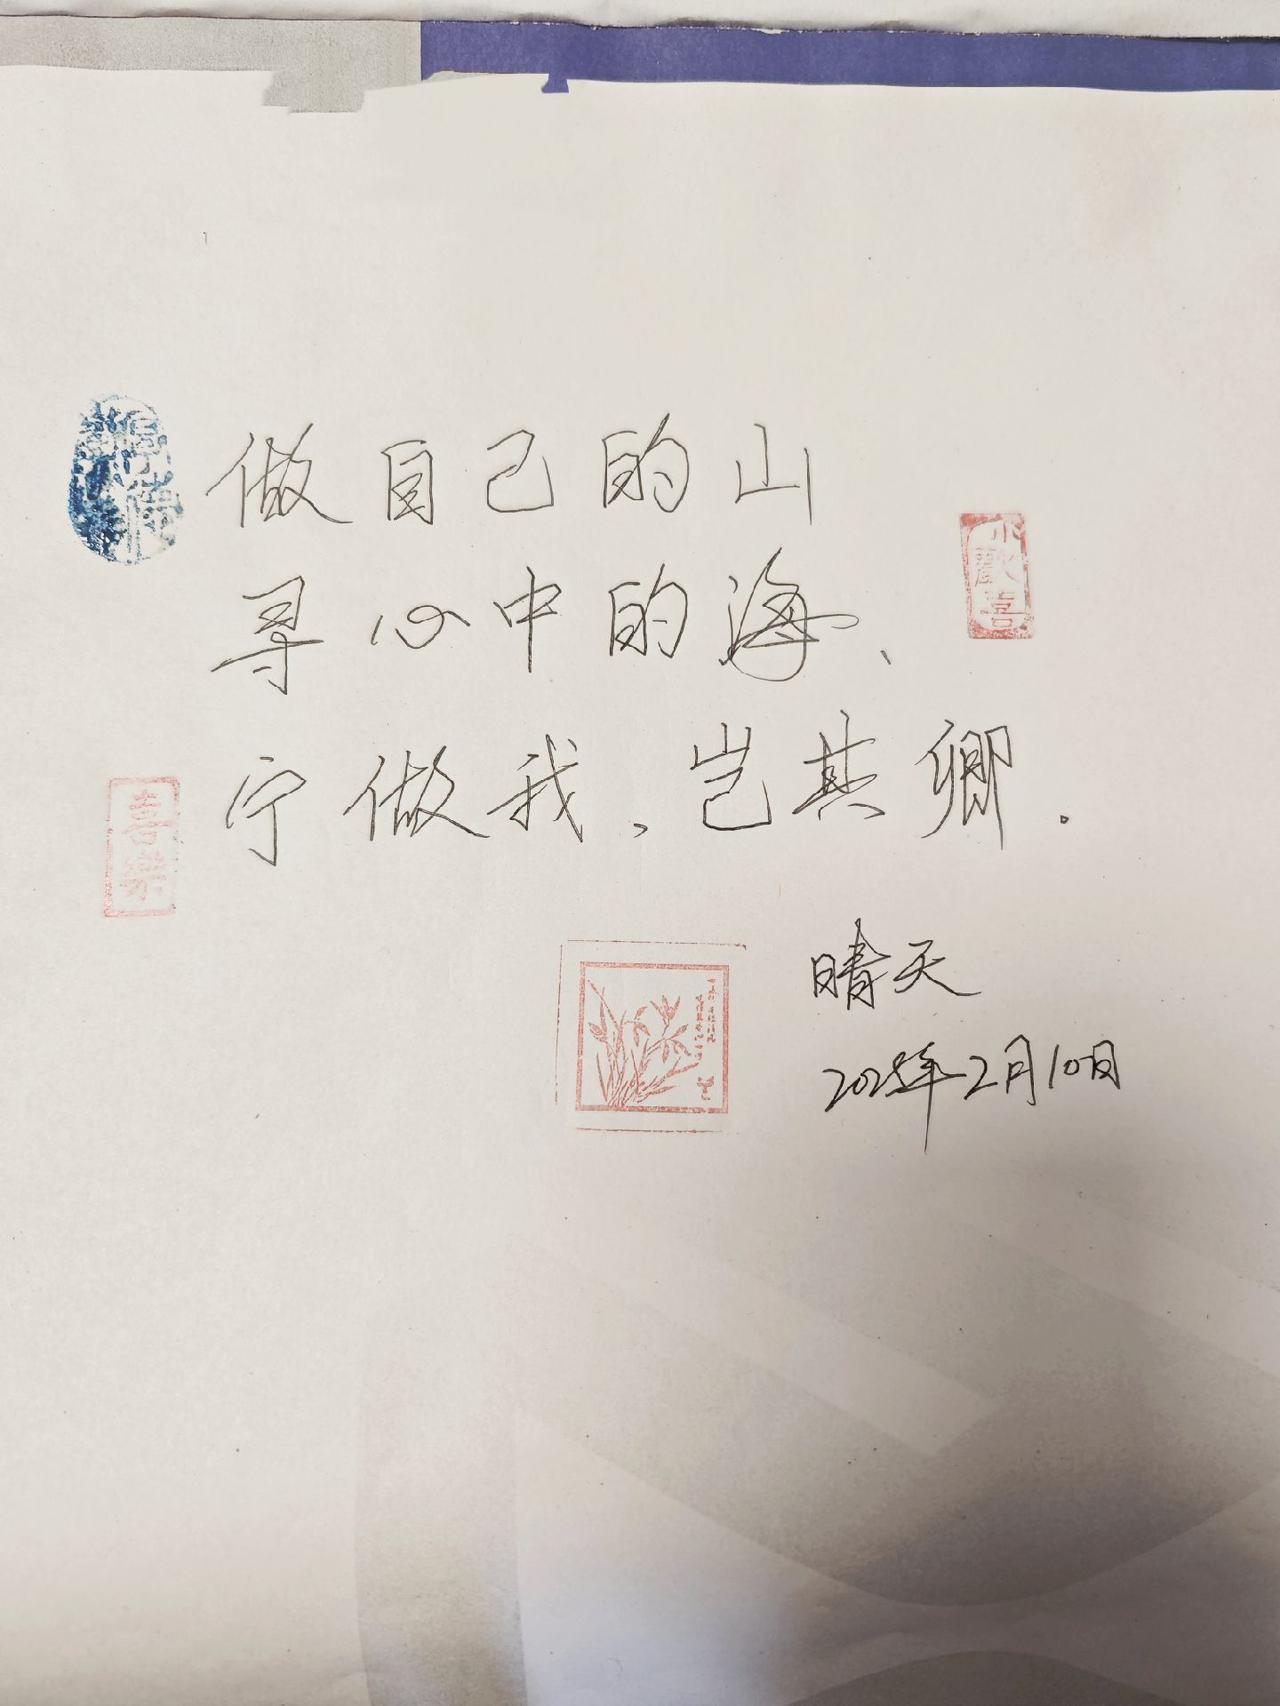 做自己的山
寻心中的海、
宁做我、岂其卿.
晴天
2025年2月10日
小歡喜
喜樂